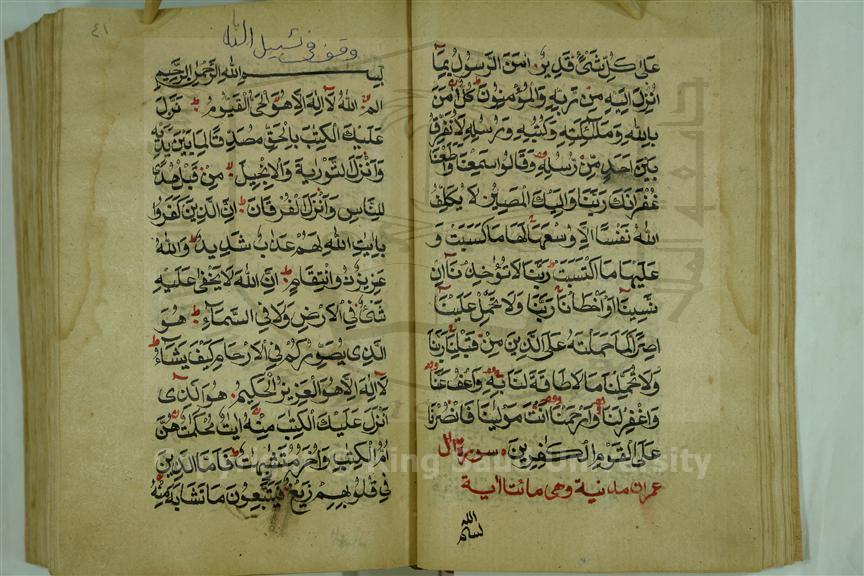 على كل شئ قدير امن الرسول بما
انزل اليه من ربه والمؤمنون كل امن
بالله وملئكته وكتبه ورسله لا نفرق
بين احد من رسله وقالوا سمعنا واطعنا
غفرانك ربنا واليك المصير لا يكلف
الله نفسا الا وسعها لها ما كسبت و
عليها ما اكتسبت ربنا لا تؤاخذنا ان
نسينا او اخطأنا ربنا ولا تحمل علينا
اصرا كما حملته على الذين من قبلنا ربنا
ولا تحملنا ما لا طاقة لنا به واعف عنا
واغفر لنا وارحمنا انت مولينا فانصرنا
على القوم الكفرين سورة ال
عمران مدنية وهي مائتا اية
بسم الله
٤١
وقف في سبيل الله
بسم الله الرحمن الرحيم
الم الله لا اله الا هو الحي القيوم نزل
عليك الكتب بالحق مصدقا لما بين يديه
وانزل التورية والانجيل من قبل هدى
للناس وانزل الفرقان ان الذين كفروا
بايت الله لهم عذاب شديد والله
عزيز ذو انتقام ان الله لا يخفى عليه
شئ في الارض ولا في السماء هو
الذي يصوركم في الارحام كيف يشاء
لا اله الا هو العزيز الحكيم هو الذي
انزل عليك الكتب منه ايت محكمت هن
ام الكتب واخر متشبهت فاما الذين
في قلوبهم زيغ فيتبعون ما تشابه منه
King Saud University